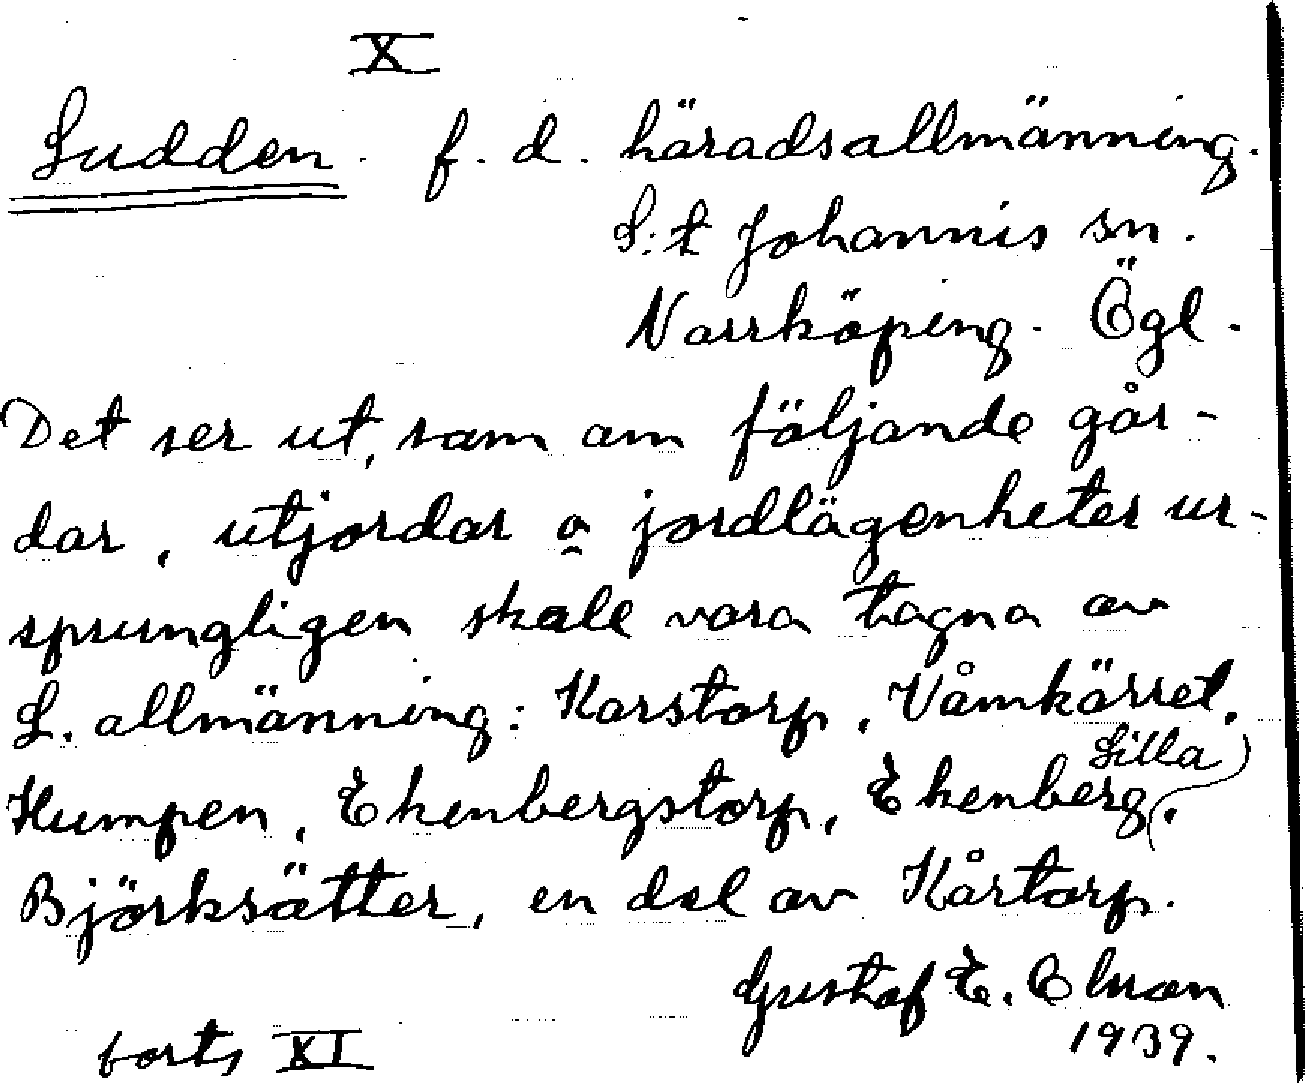 X
Sudden. f. d. häradsallmänning.
S:t Johannis sn.
Norrköping. Ögl.
Det ser ut, som om följande går-
dar, utjordar o jordlägenheter ur-
sprungligen skole vara tagna av
S. allmänning: Karstorp, Våmkärret,
Kumpen, Ekenbergstorp, Ekenberg, Lilla
Björksätter, en del av Kårtorp.
Gustaf E.
1939.
forts XI